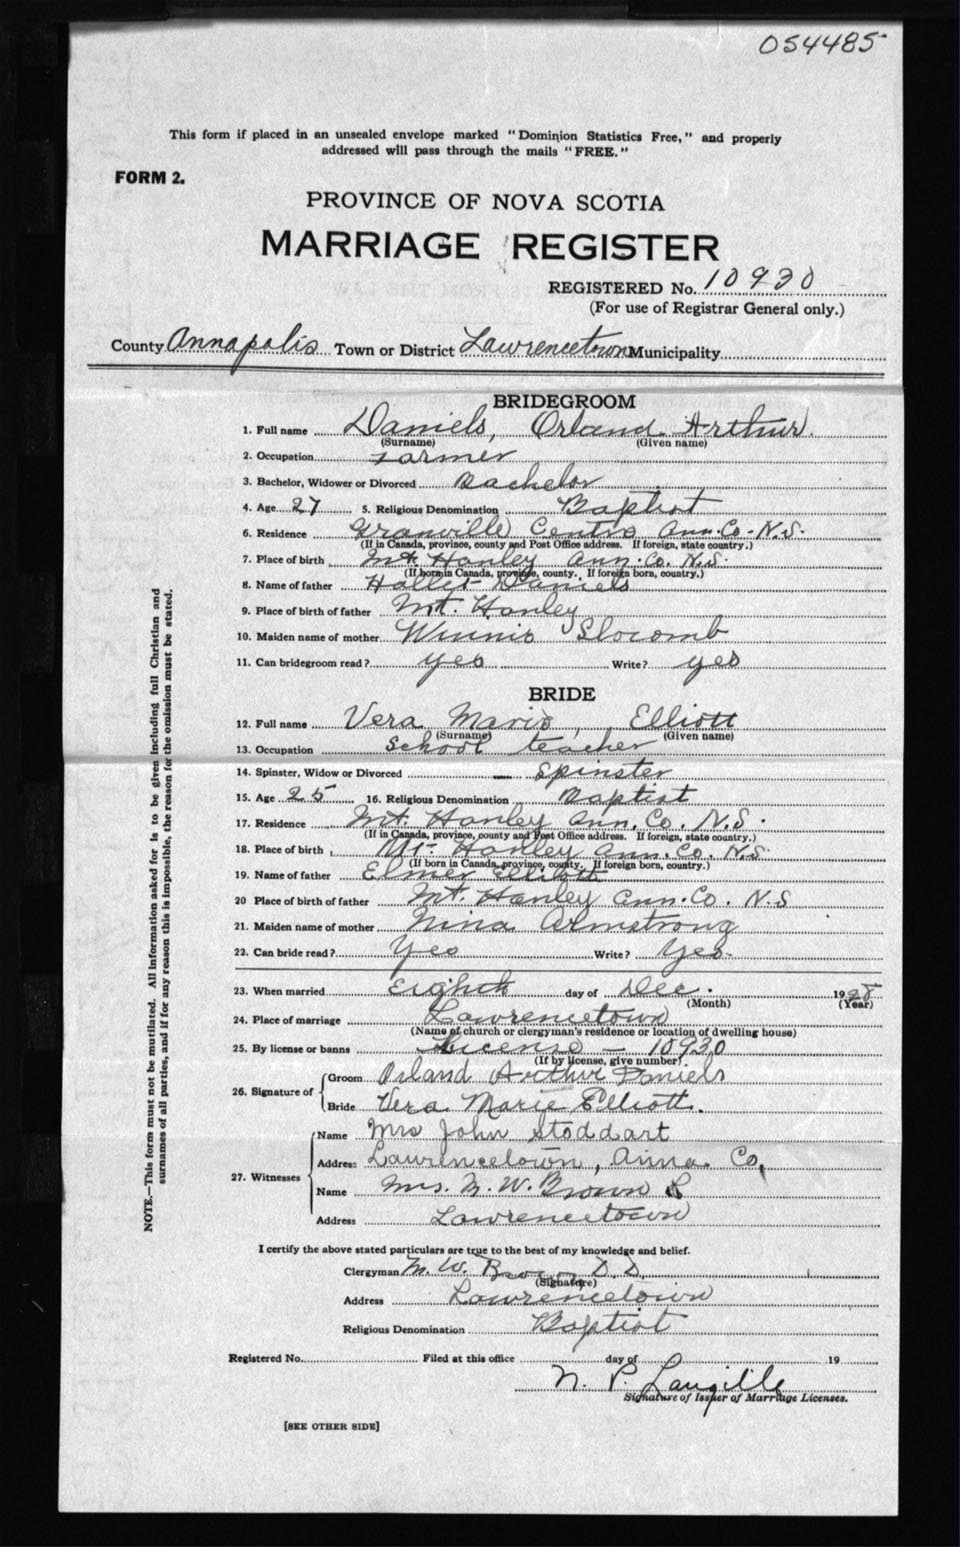 054485
This form if placed in an unsealed envelope marked "Dominion Statistics Free," and properly
addressed will pass through the mails "FREE."
FORM 2.
PROVINCE OF NOVA SCOTIA
MARRIAGE REGISTER
REGISTERED No. 10930
(For use of Registrar General only.)
County Annapolis Town or District Lawrencetown Municipality
BRIDEGROOM
1. Full name Daniels, Orland Arthur.
(Surname) (Given name)
2. Occupation Farmer
3. Bachelor, Widower or Divorced Bachelor
4. Age 27 5. Religious Denomination Baptist
6. Residence Granville Centre Ann. Co. N.S.
(If in Canada, province, county and Post Office address. If foreign, state country.)
7. Place of birth Mt. Hanley Ann. Co. N.S.
(If born in Canada, province, county. If foreign born, country.)
8. Name of father Daniels
9. Place of birth of father Mt. Hanley
10. Maiden name of mother Winnie Slocomb
11. Can bridegroom read? yes Write? yes
BRIDE
12. Full name Vera Marie, Elliott
(Surname) (Given name)
13. Occupation School teacher
14. Spinster, Widow or Divorced — Spinster
15. Age 25 16. Religious Denomination Baptist
17. Residence Mt. Hanley Ann. Co. N.S.
(If in Canada, province, county and Post Office address. If foreign, state country.)
18. Place of birth Mt. Hanley Ann. Co. N.S
(If born in Canada, province, county. If foreign born, country.)
19. Name of father Elmer Elliott
20 Place of birth of father Mt. Hanley Ann. Co. N.S
21. Maiden name of mother Nina Armstrong
22. Can bride read? Yes Write? Yes.
23. When married Eighth day of Dec. 1928
(Month) (Year)
24. Place of marriage Lawrencetown
(Name of church or clergyman's residence or location of dwelling house)
25. By license or banns License — 10930
(If by license, give number)
26. Signature of Groom Orland Arthur Daniels
Bride Vera Marie Elliott.
27. Witnesses Name Mrs John Stoddart
Address Lawrencetown, Anna. Co,
Name Mrs. M. W. Brown
Address Lawrencetown
I certify the above stated particulars are true to the best of my knowledge and belief.
Clergyman M. W. Brown D.D.
(Signature)
Address Lawrencetown
Religious Denomination Baptist
Registered No. Filed at this office day of 19
N. P. Langille
Signature of Issuer of Marriage Licenses.
[SEE OTHER SIDE]
NOTE.—This form must not be mutilated. All information asked for is to be given including full Christian and
surnames of all parties, and if for any reason this is impossible, the reason for the omission must be stated.